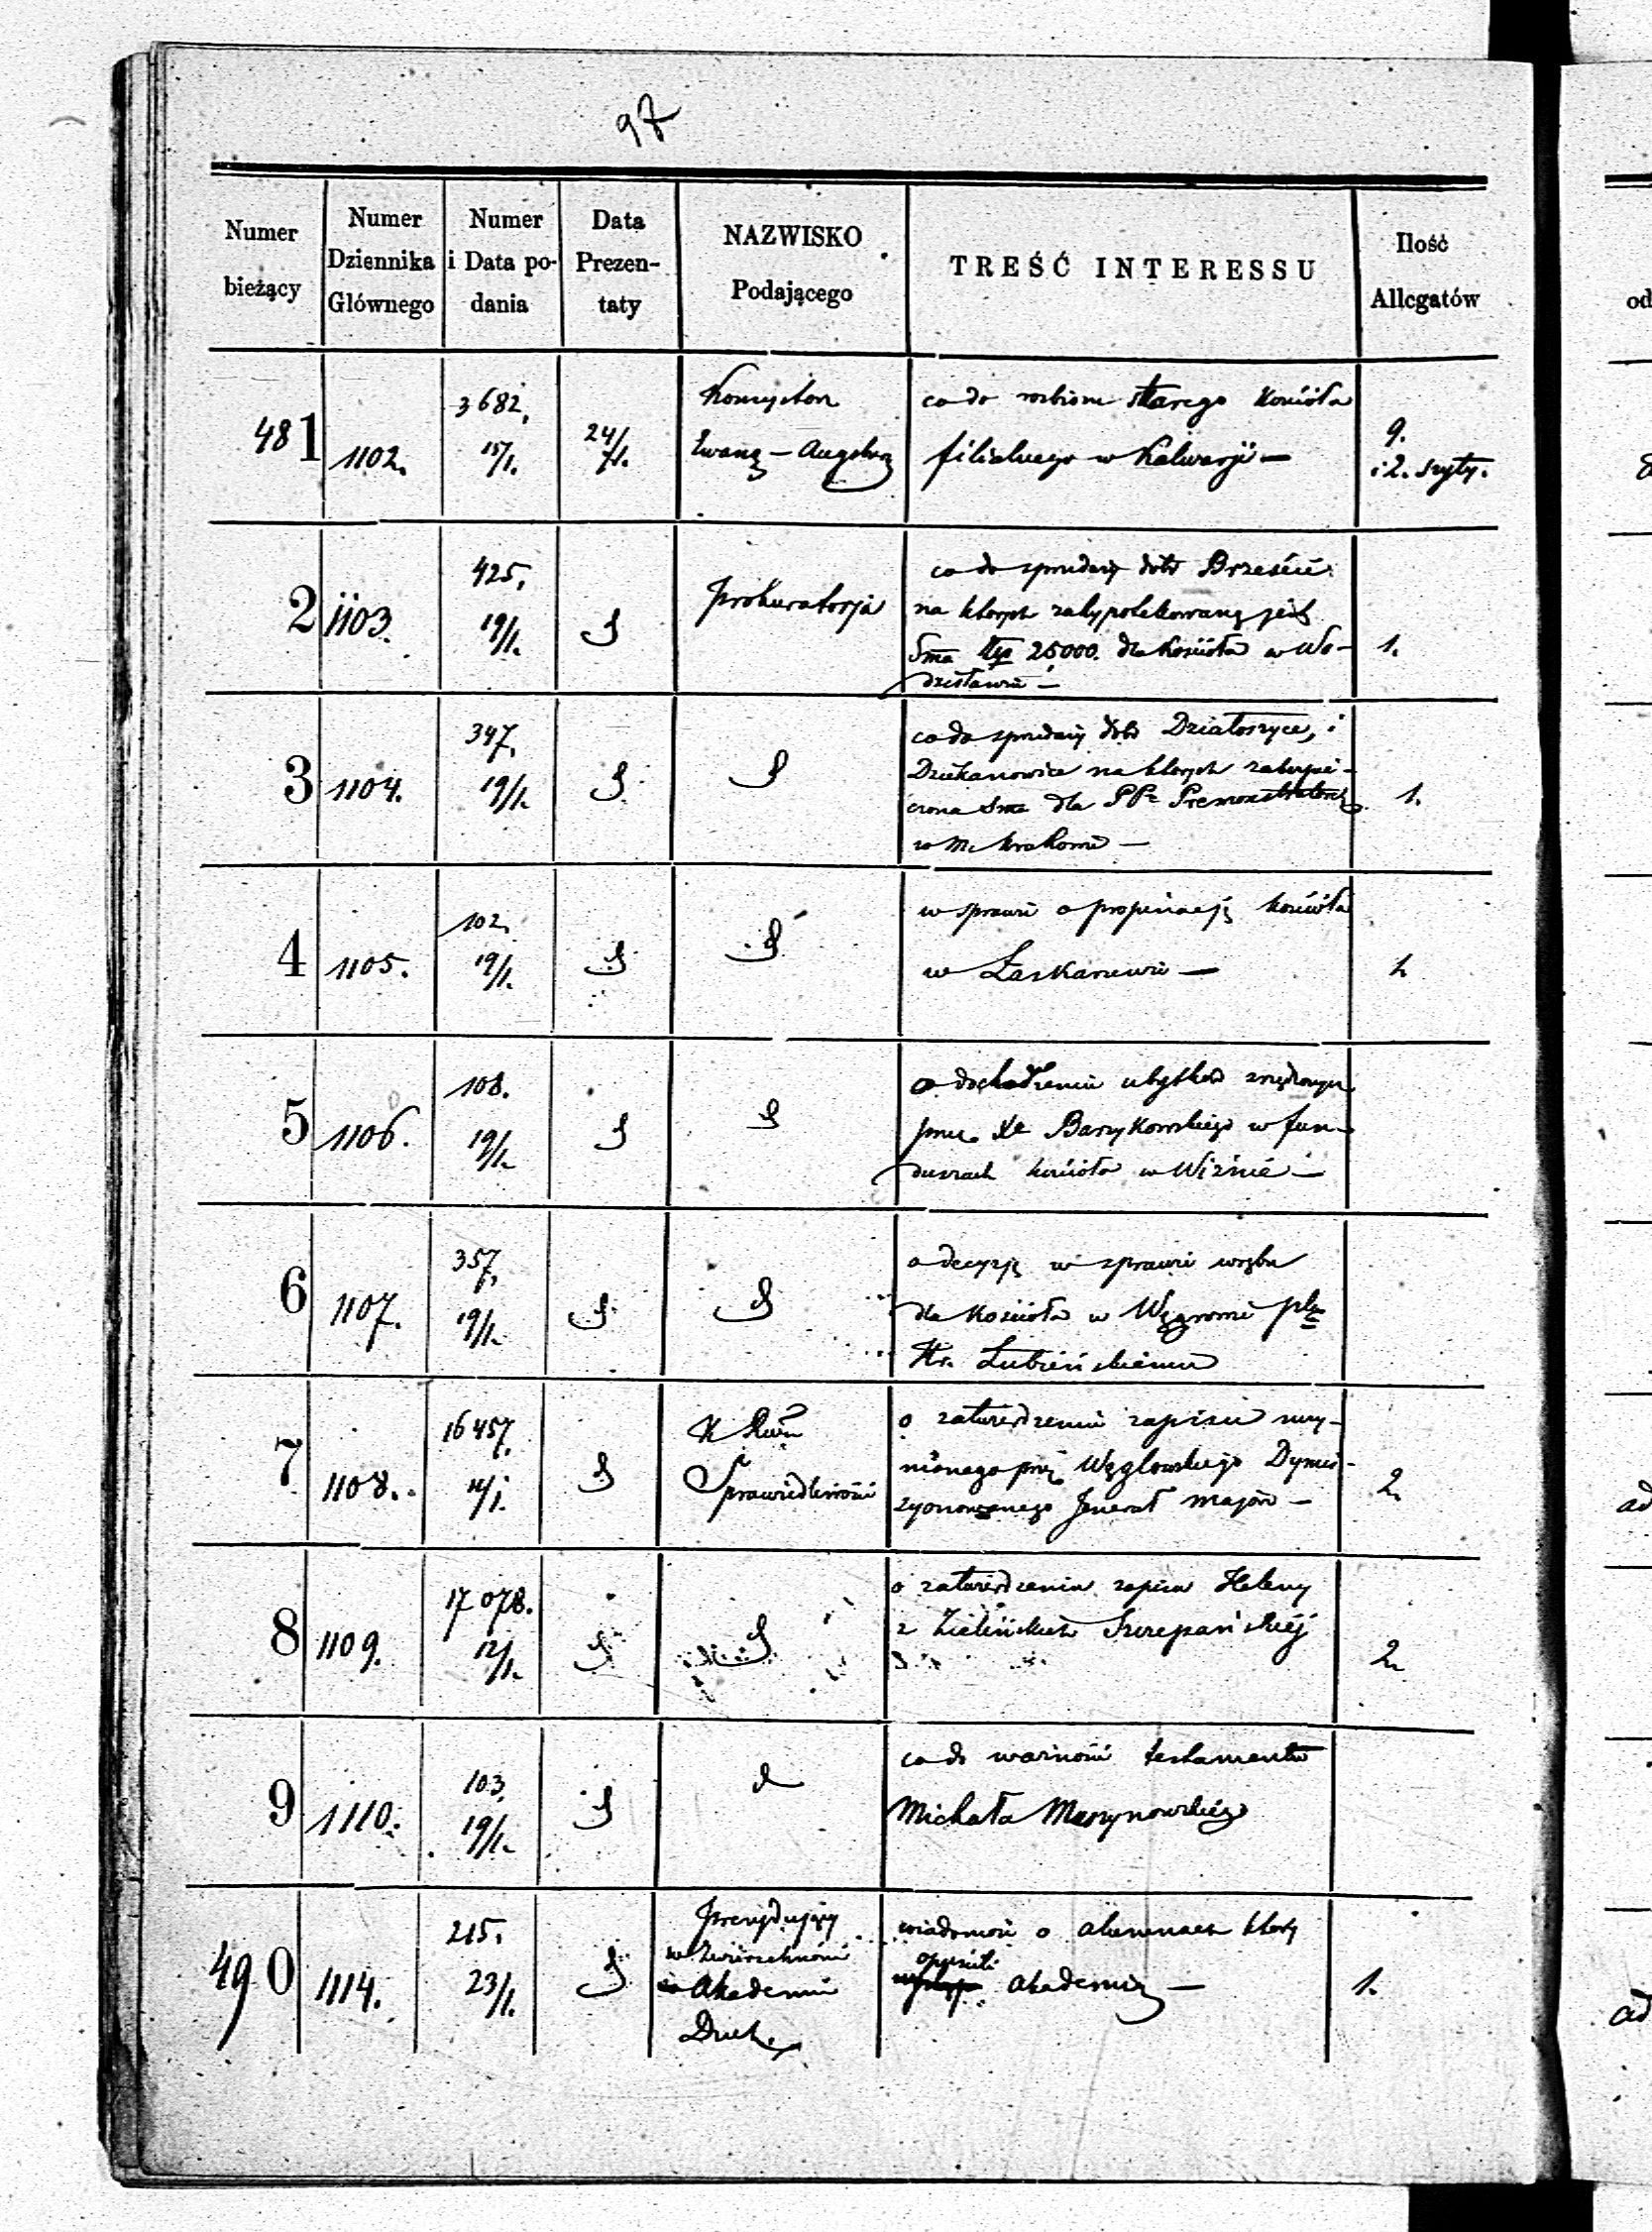 97
Numer bieżący
Numer Dziennika Głównego
Numer i Data podania
Data Prezentaty
NAZWISKO Podającego
TREŚĆ INTERESSU
Ilość Allegatów
481
1102.
3682.
15/1.
24/1.
Konsystorz
Ewang – Augsburg
co do rozbioru starego kościoła
filialnego w Kalwaryi –
9.
i 2. szyty.
2
1103.
425.
19/1.
Prokuratorja
co do sprzedaży dóbr Brzeście
na których zahypotekowaną jest
25000. dla Kościoła w Wo-
dzisławiu –
1.
3
1104.
347.
19/1.
co do sprzedaży dóbr Działoszyce, i
Dziekanowice na których zabezpie-
czona dla
w M. Krakowie –
1.
4
1105.
102.
19/1.
w sprawie o propinację kościoła
w Łaskarzewie –
1.
5
1106.
108.
19/1.
o dochodzeniu ubytków zrządzonych
przez Xa w fun-
duszach kościoła w Wiźnie –
6
1107.
357.
19/1.
o decyzję w sprawie wrębu
dla Kościoła w Węgrowie
Hr. Łubieńskiemu
7
1108.
16457.
Sprawiedliwości
o zatwierdzenie zapisu uczy-
nionego przez Węglowskiego Dymis-
syonowanego Jenerał Majora –
2.
8
1109.
17078.
12/1.
o zatwierdzenie zapisu Heleny
z Zielińskich Szczepańskiéj
2.
9
1110.
103.
19/1.
co do ważności testamentu
Michała
490
1114.
215.
23/1.
Prezydujący
w Zwierzchności
Akademii
Duch.
wiadomość o alumnach którzy
opuścili
Akademię –
1.